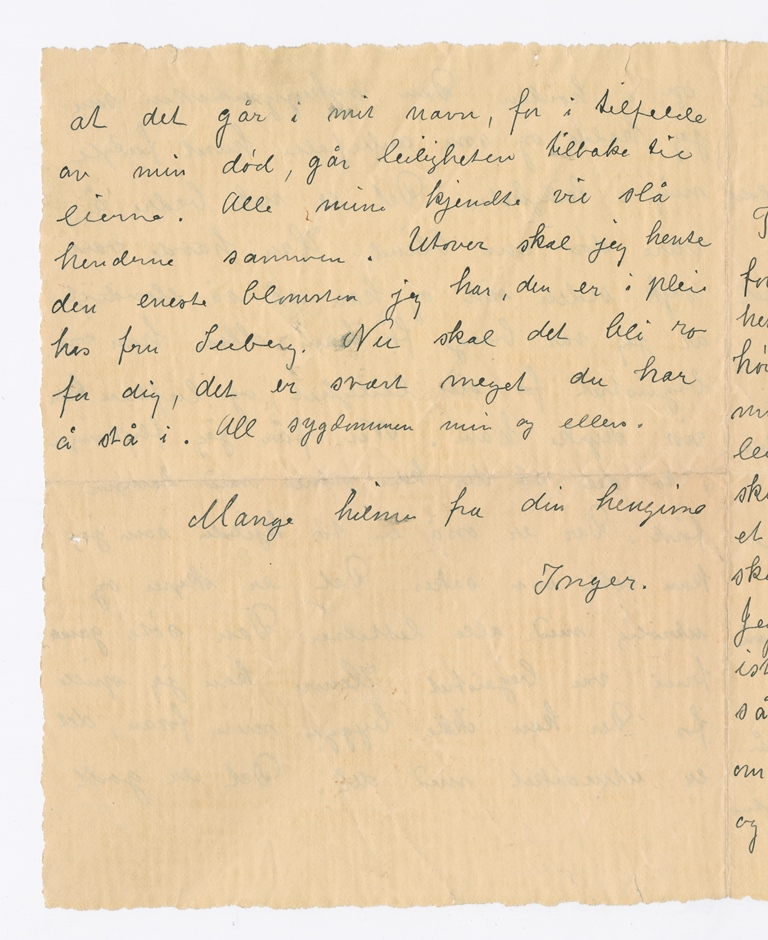 at det går i mit navn, for i tilfelde
av min død, går leiligheten tilbake til
eierne. Alle mine kjendte vil slå
henderne sammen. Utover skal jeg hente
den eneste blomsten jeg har, den er i pleie
hos fru Seeberg. Nu skal det bli ro
for dig, det er svært meget du har
å stå i. All sygdommen min og ellers.
Mange hilsner fra din hengivne
Inger.
for
et
Jeg
så
om
og